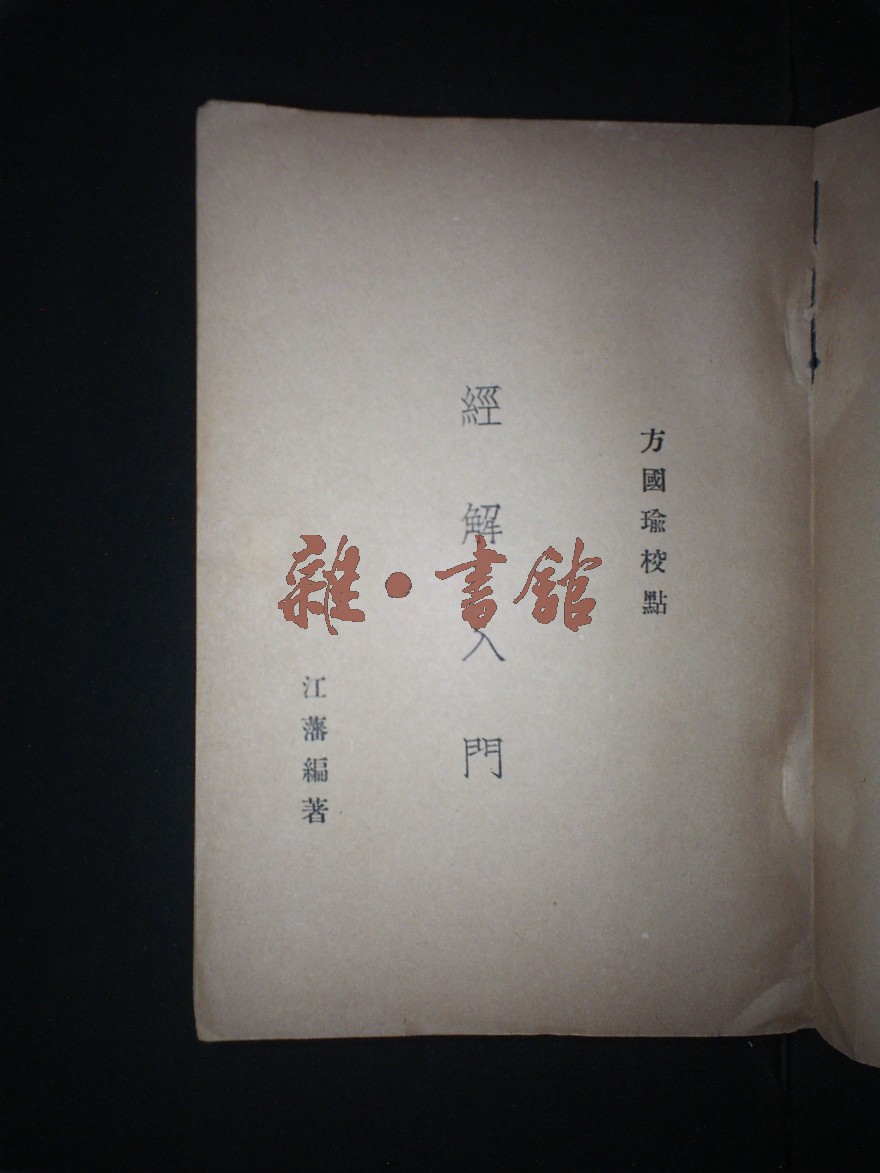 方國瑜校點
經解入門
江藩編著
雜·書館